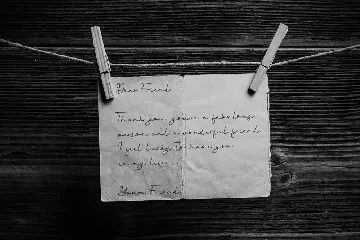 Dear Friend
Thank you, you're a fabulous
person and a wonderful friend,
I feel lucky to have you
in my life.
Friend